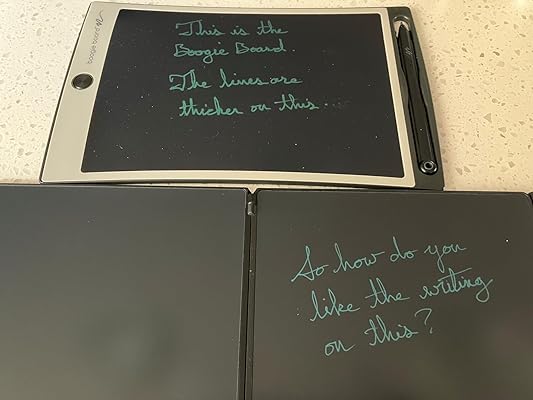 boogie board
This is the
Boogie Board.
The lines are
thicker on this.
So how do you
like the writing
on this?